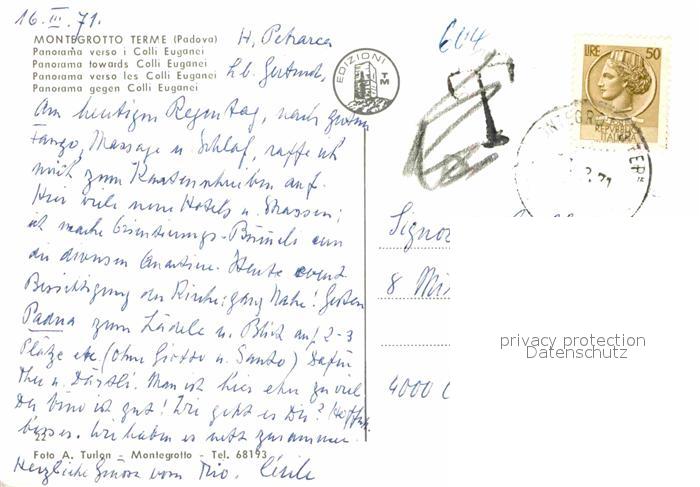 16. III. 71.
MONTEGROTTO TERME (Padova)
Panorama verso i Colli Euganei
Panorama towards Colli Euganei
Panorama verso les Colli Euganei
Panorama gegen Colli Euganei
H. Petrarca
EDIZIONI TM
604
LIRE 50
REPUBBLICA ITALIANA
Lb. Gertrud,
Am heutigen Regentag, nach gutem
Fango, Massage u. Schlaf, raffe ich
mich zum Kartenschreiben auf.
Hier viele neue Hotels u. Strassen;
ich mache Orientierungs-Bummels in
die diversen Quartiere. Heute event
Besichtigung der Kirche: ganz nahe! Gestern
Padua zum Lädele u. Blick auf 2-3
Plätze etc (ohne Giotto u. Santo) Dafür
Thee u. Man ist hier eher zu viel
Der vino ist gut! Wie geht es Dir? Hoffentl.
besser. Wir haben es nett zusammen.
22
Foto A. Turlon - Montegrotto - Tel. 68193
Herzliche Grüsse vom Trio. Cécile
Signor
8
4000
privacy protection
Datenschutz